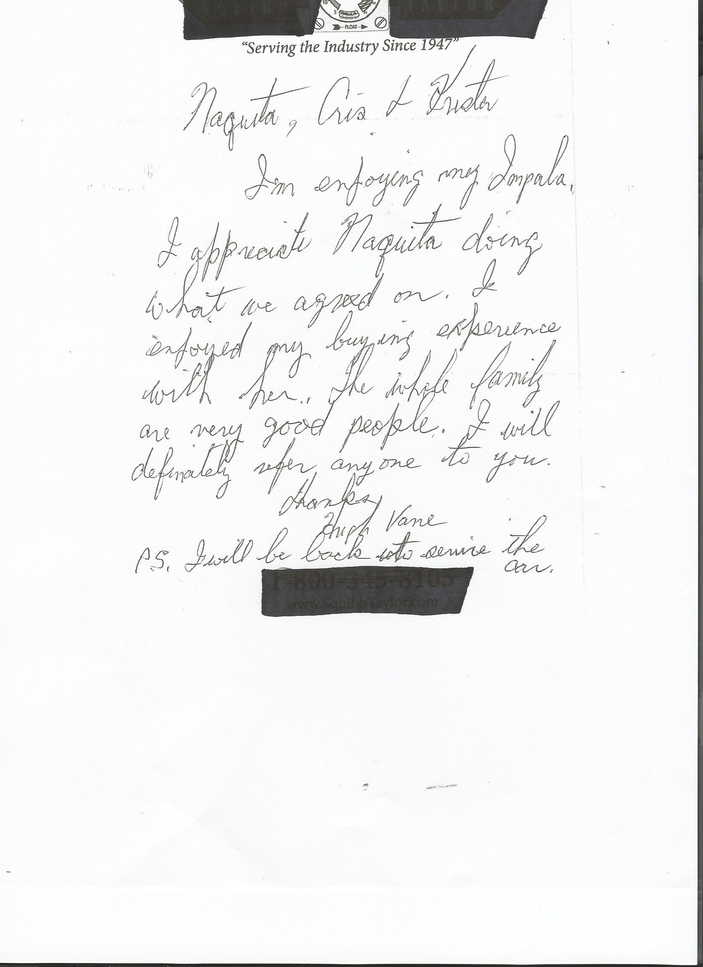 FLOAT
“Serving the Industry Since 1947”
Naquita, Cris &
I'm enjoying my Impala.
I appreciate Naquita doing
what we agreed on. I
enjoyed my buying experience
with her. The whole family
are very good people. I will
definately refer anyone to you.
thanks
Hugh Vane
P.S. I will be back to service the
car.
1-800-345-8105
www.SquibbTaylor.com